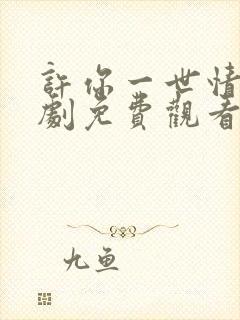 許你一世情
劇免費觀看
九鱼